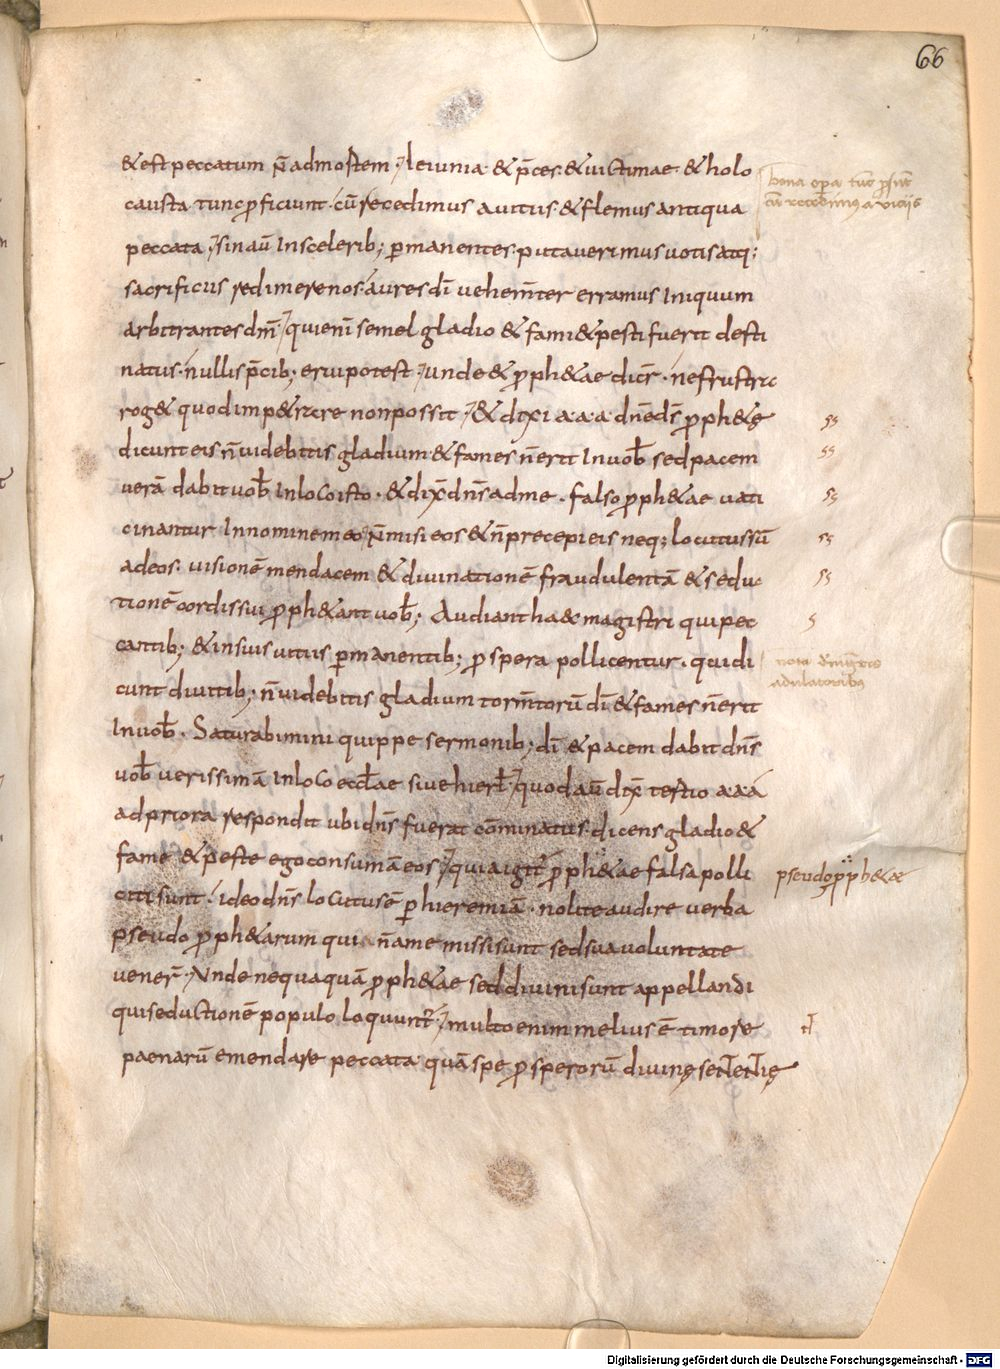 66
& est peccatum n̄ ad mortem · Ieiunia · & p̄ces · & uictimae · & holo
causta · tunc proficiunt · cū recedimus a uitiis · & flemus antiqua
peccata · sin aū In sceleribꝫ permanentes · putauerimus uotis atqꝫ
sacrificiis redimere nos · aures dī uehem̄ter erramus Iniquum
arbitrantes dn̄m · qui eni semel gladio & fami & pesti fuerit desti
natus · nullis p̄cibꝫ erui potest · unde & proph&ae dicit̄ · ne frustra
rog& quod imp&rare non possit · & dixi a a a dn̄e ds̄ proph&ę
dicunt eis n̄ uidebitis gladium & fames n̄ erit In uob̄ sed pacem
uerā dabit uob̄ In loco isto · & dix̄ dn̄s ad me · falso proph&ae uati
cinantur In nomine meo n̄ misi eos & n̄ precepi eis neqꝫ locutus sū
ad eos · uisionē mendacem & diuinationē fraudulentā & seduc
tionē cordis sui proph&ant uob̄ꝫ Audiant haec magistri qui pec
cantibꝫ & in suis uitiis permanentibꝫ prospera pollicentur · qui di
cunt diuitibꝫ n̄ uidebitis gladium torm̄torū dī & fames n̄ erit
In uob̄ · Saturabimini quippe sermonibꝫ dī & pacem dabit dn̄s
uob̄ uerissimā In loco eccl̄ae siue hierl̄ · quod aū dix̄ tertio a a a
ad priora respondit ubi dn̄s fuerat cōminatus · dicens gladio &
fame & peste ego consumā eos · quia igit̄ proph&ae falsa polli
citi sunt · ideo dn̄s locutus ē per hieremiā · nolite audire uerba
pseudo proph&arum qui n̄ a me missi sunt sed sua uoluntate
uener̄ · Unde nequaquā proph&ae sed diuini sunt appellandi
qui seductionē populo loquunt̄ · multo enim melius ē timore
paenarū emendare peccata quā spe prosperorū diuinę sententię
bona opa tunc psunt
cū recedimꝰ a viciis
ss
ss
ss
ss
ss
s
nota
adulatoribꝰ
pseudopph&ae
Digitalisierung gefördert durch die Deutsche Forschungsgemeinschaft - DFG